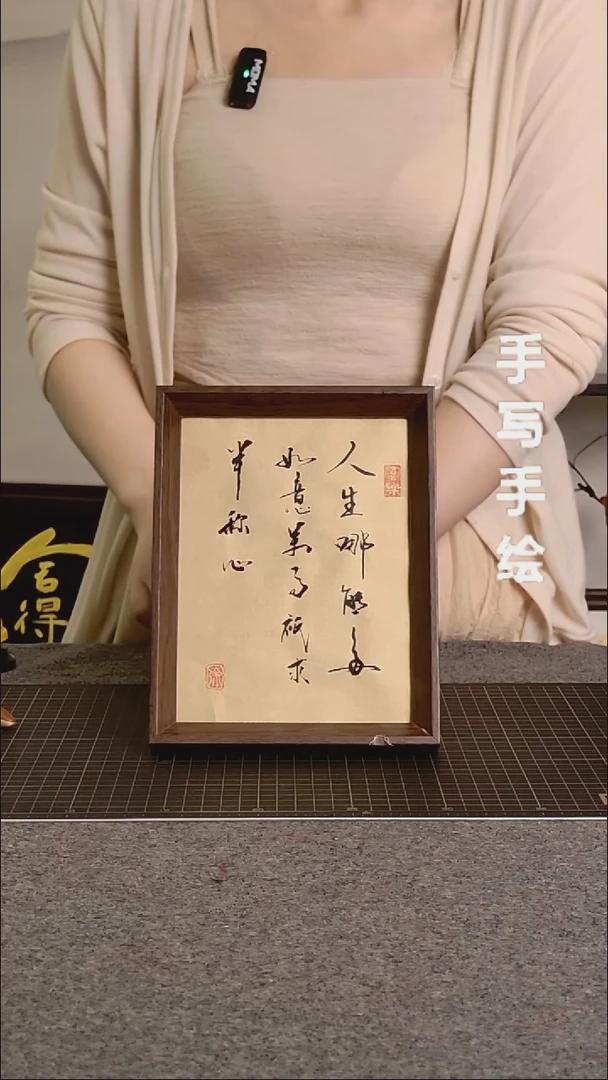 MOMA
手写手绘
人生哪能多
如意万事祗求
半称心
舍得